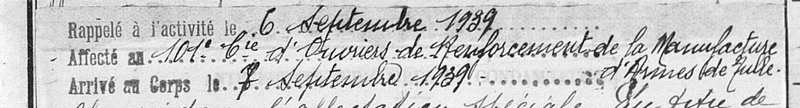 Rappelé à l'activité le 6 Septembre 1939
Affecté au 101e Cie d'Ouvriers de Renforcement de la Manufacture
Arrivé au Corps le 7 Septembre 1939 - d'Armes de Tulle.
l'affectation spéciale. Au titre de